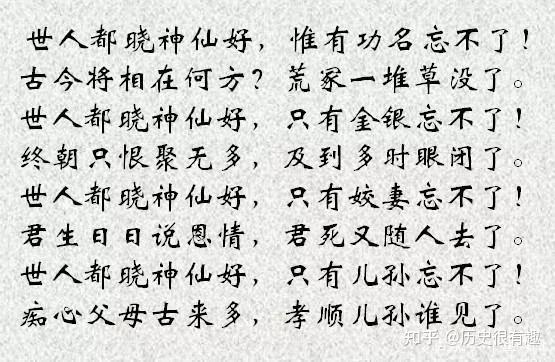 世人都晓神仙好，惟有功名忘不了！
古今将相在何方？荒冢一堆草没了。
世人都晓神仙好，只有金银忘不了！
终朝只恨聚无多，及到多时眼闭了。
世人都晓神仙好，只有姣妻忘不了！
君生日日说恩情，君死又随人去了。
世人都晓神仙好，只有儿孙忘不了！
痴心父母古来多，孝顺儿孙谁见了。
知乎 @历史很有趣